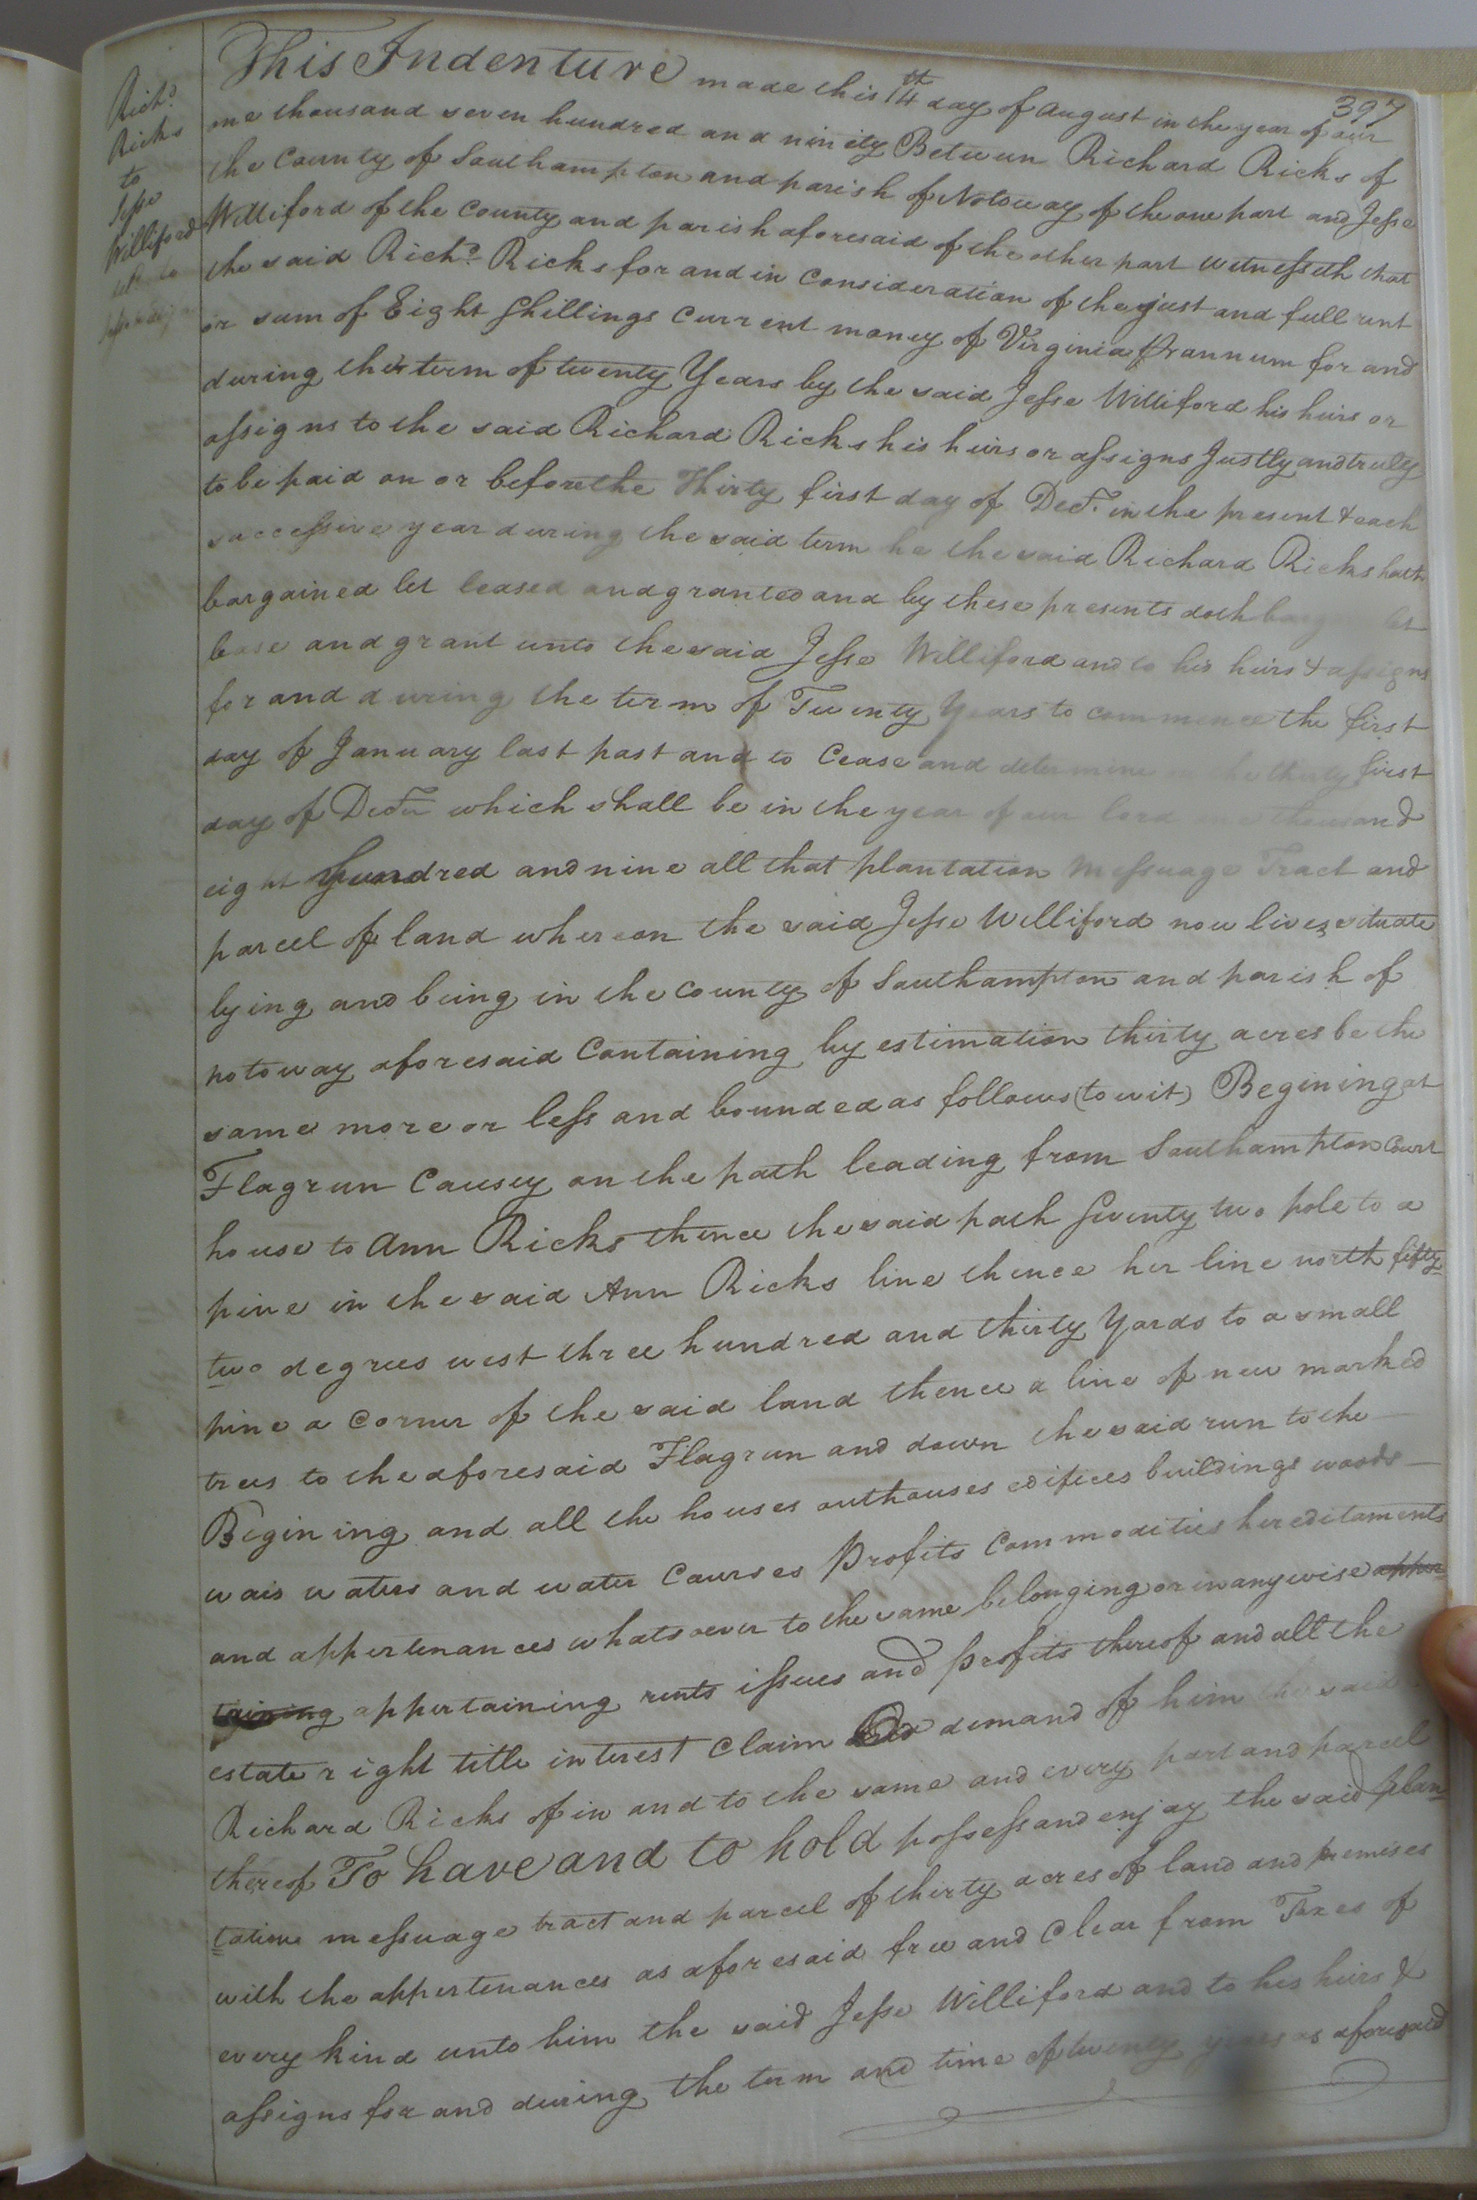 397
Richd.
Ricks
to
Jesse
Williford
This Indenture made this 14th day of August in the year of our
one thousand seven hundred and ninety Between Richard Ricks of
the County of Southampton and parish of Notoway of the one part and Jesse
Williford of the County and parish aforesaid of the other part witnesseth that
the said Richd. Ricks for and in Consideration of the just and full rent
or sum of Eight Shillings Current money of Virginia Pr annum for and
during their term of twenty Years by the said Jesse Williford his heirs or
assigns to the said Richard Ricks his heirs or assigns Justly and truly
to be paid on or before the Thirty first day of Decr. in the present & each
successive year during the said term he the said Richard Ricks hath
bargained let leased and granted and by these presents doth barg let
lease and grant unto the said Jesse Williford and to his heirs & assigns
for and during the term of Twenty Years to commence the first
day of January last past and to Cease and determine the thirty first
day of Decr which shall be in the year of our lord one thousand
eight hundred and nine all that plantation Messuage Tract and
parcel of land whereon the said Jesse Williford now lives situate
lying and being in the County of Southampton and parish of
notoway aforesaid Containing by estimation thirty acres be the
same more or less and bounded as follows (to wit) Begining at
Flagrun Causey on the path leading from Southampton Court
house to Ann Ricks thence the said path Seventy two pole to a
pine in the said Ann Ricks line thence her line north fifty=
two degrees west three hundred and thirty Yards to a small
pine a Corner of the said land thence a line of new marked
trees to the aforesaid Flagrun and down the said run to the
Begining and all the houses outhouses edifices buildings woods
wais waters and water Courses Profits Commodities hereditaments
and appertenances whatsoever to the same belonging or in anywise apper
taining appertaining rents issues and profits thereof and all the
estate right title interest Claim and demand of him the said
Richard Ricks of in and to the same and every part and parcel
thereof To have and to hold possess and enjoy the said plan=
tation messuage tract and parcel of thirty acres of land and premises
with the appertenances as aforesaid free and Clear from Taxes of
every kind unto him the said Jesse Williford and to his heirs &
assigns for and during the term and time of twenty years as aforesaid